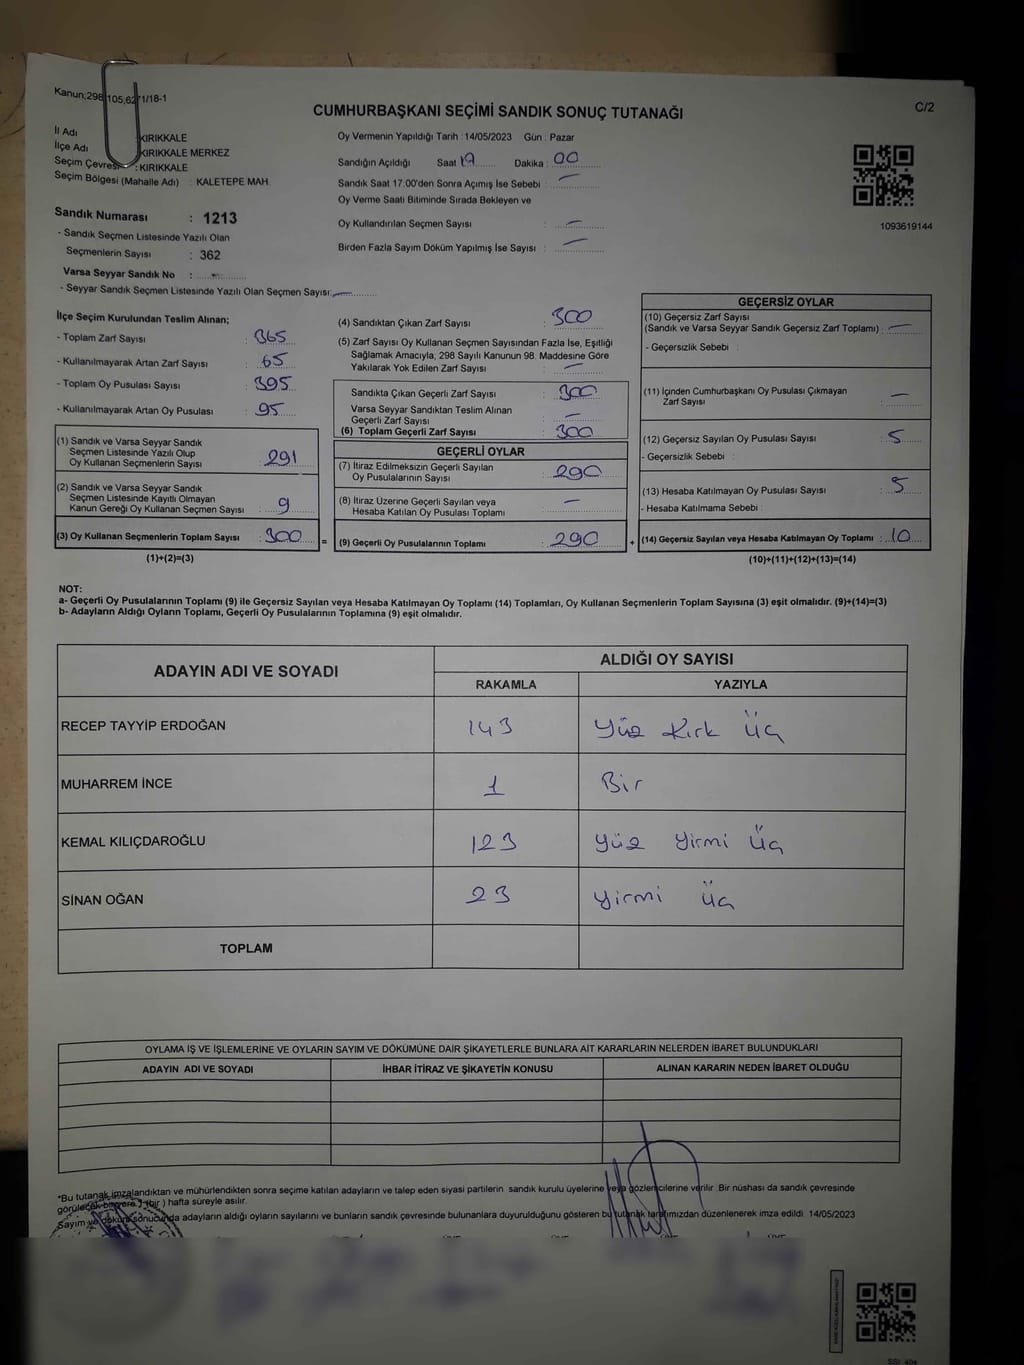 Kanun;298 105,62 1/18-1
CUMHURBAŞKANI SEÇİMİ SANDIK SONUÇ TUTANAĞI
C/2
İl Adı : KIRIKKALE
İlçe Adı : KIRIKKALE MERKEZ
Seçim Çevresi : KIRIKKALE
Seçim Bölgesi (Mahalle Adı) : KALETEPE MAH.
Oy Vermenin Yapıldığı Tarih : 14/05/2023 Gün : Pazar
Sandığın Açıldığı Saat Dakika : 00
Sandık Saat 17:00'den Sonra Açımış İse Sebebi : —
Oy Verme Saati Bitiminde Sırada Bekleyen ve
Oy Kullandırılan Seçmen Sayısı : —
Birden Fazla Sayım Döküm Yapılmış İse Sayısı : —
1093619144
Sandık Numarası : 1213
- Sandık Seçmen Listesinde Yazılı Olan
Seçmenlerin Sayısı : 362
Varsa Seyyar Sandık No : —
- Seyyar Sandık Seçmen Listesinde Yazılı Olan Seçmen Sayısı: —
İlçe Seçim Kurulundan Teslim Alınan;
- Toplam Zarf Sayısı : 365
- Kullanılmayarak Artan Zarf Sayısı : 65
- Toplam Oy Pusulası Sayısı : 395
- Kullanılmayarak Artan Oy Pusulası : 95
(1) Sandık ve Varsa Seyyar Sandık
Seçmen Listesinde Yazılı Olup
Oy Kullanan Seçmenlerin Sayısı : 291
(2) Sandık ve Varsa Seyyar Sandık
Seçmen Listesinde Kayıtlı Olmayan
Kanun Gereği Oy Kullanan Seçmen Sayısı : 9
(3) Oy Kullanan Seçmenlerin Toplam Sayısı : 300 =
(1)+(2)=(3)
(4) Sandıktan Çıkan Zarf Sayısı : 300
(5) Zarf Sayısı Oy Kullanan Seçmen Sayısından Fazla İse, Eşitliği
Sağlamak Amacıyla, 298 Sayılı Kanunun 98. Maddesine Göre
Yakılarak Yok Edilen Zarf Sayısı : —
Sandıkta Çıkan Geçerli Zarf Sayısı : 300
Varsa Seyyar Sandıktan Teslim Alınan
Geçerli Zarf Sayısı : —
(6) Toplam Geçerli Zarf Sayısı : 300
GEÇERLİ OYLAR
(7) İtiraz Edilmeksizin Geçerli Sayılan
Oy Pusulalarının Sayısı : 290
(8) İtiraz Üzerine Geçerli Sayılan veya
Hesaba Katılan Oy Pusulası Toplamı : —
(9) Geçerli Oy Pusulalarının Toplamı : 290 +
GEÇERSİZ OYLAR
(10) Geçersiz Zarf Sayısı
(Sandık ve Varsa Seyyar Sandık Geçersiz Zarf Toplamı) : —
- Geçersizlik Sebebi :
(11) İçinden Cumhurbaşkanı Oy Pusulası Çıkmayan
Zarf Sayısı : —
(12) Geçersiz Sayılan Oy Pusulası Sayısı : 5
- Geçersizlik Sebebi :
(13) Hesaba Katılmayan Oy Pusulası Sayısı : 5
- Hesaba Katılmama Sebebi :
(14) Geçersiz Sayılan veya Hesaba Katılmayan Oy Toplamı : 10
(10)+(11)+(12)+(13)=(14)
NOT:
a- Geçerli Oy Pusulalarının Toplamı (9) ile Geçersiz Sayılan veya Hesaba Katılmayan Oy Toplamı (14) Toplamları, Oy Kullanan Seçmenlerin Toplam Sayısına (3) eşit olmalıdır. (9)+(14)=(3)
b- Adayların Aldığı Oyların Toplamı, Geçerli Oy Pusulalarının Toplamına (9) eşit olmalıdır.
ADAYIN ADI VE SOYADI ALDIĞI OY SAYISI
RAKAMLA YAZIYLA
RECEP TAYYİP ERDOĞAN 143 Yüz Kırk Üç
MUHARREM İNCE 1 Bir
KEMAL KILIÇDAROĞLU 123 Yüz Yirmi Üç
SİNAN OĞAN 23 Yirmi Üç
TOPLAM
OYLAMA İŞ VE İŞLEMLERİNE VE OYLARIN SAYIM VE DÖKÜMÜNE DAİR ŞİKAYETLERLE BUNLARA AİT KARARLARIN NELERDEN İBARET BULUNDUKLARI
ADAYIN ADI VE SOYADI İHBAR İTİRAZ VE ŞİKAYETİN KONUSU ALINAN KARARIN NEDEN İBARET OLDUĞU
"Bu tutanak imzalandıktan ve mühürlendikten sonra seçime katılan adayların ve talep eden siyasi partilerin sandık kurulu üyelerine veya gözlemcilerine verilir. Bir nüshası da sandık çevresinde
görülecek bir yere 1 (bir) hafta süreyle asılır.
Sayım ve döküm sonucunda adayların aldığı oyların sayılarını ve bunların sandık çevresinde bulunanlara duyurulduğunu gösteren bu tutanak tarafımızdan düzenlenerek imza edildi. 14/05/2023